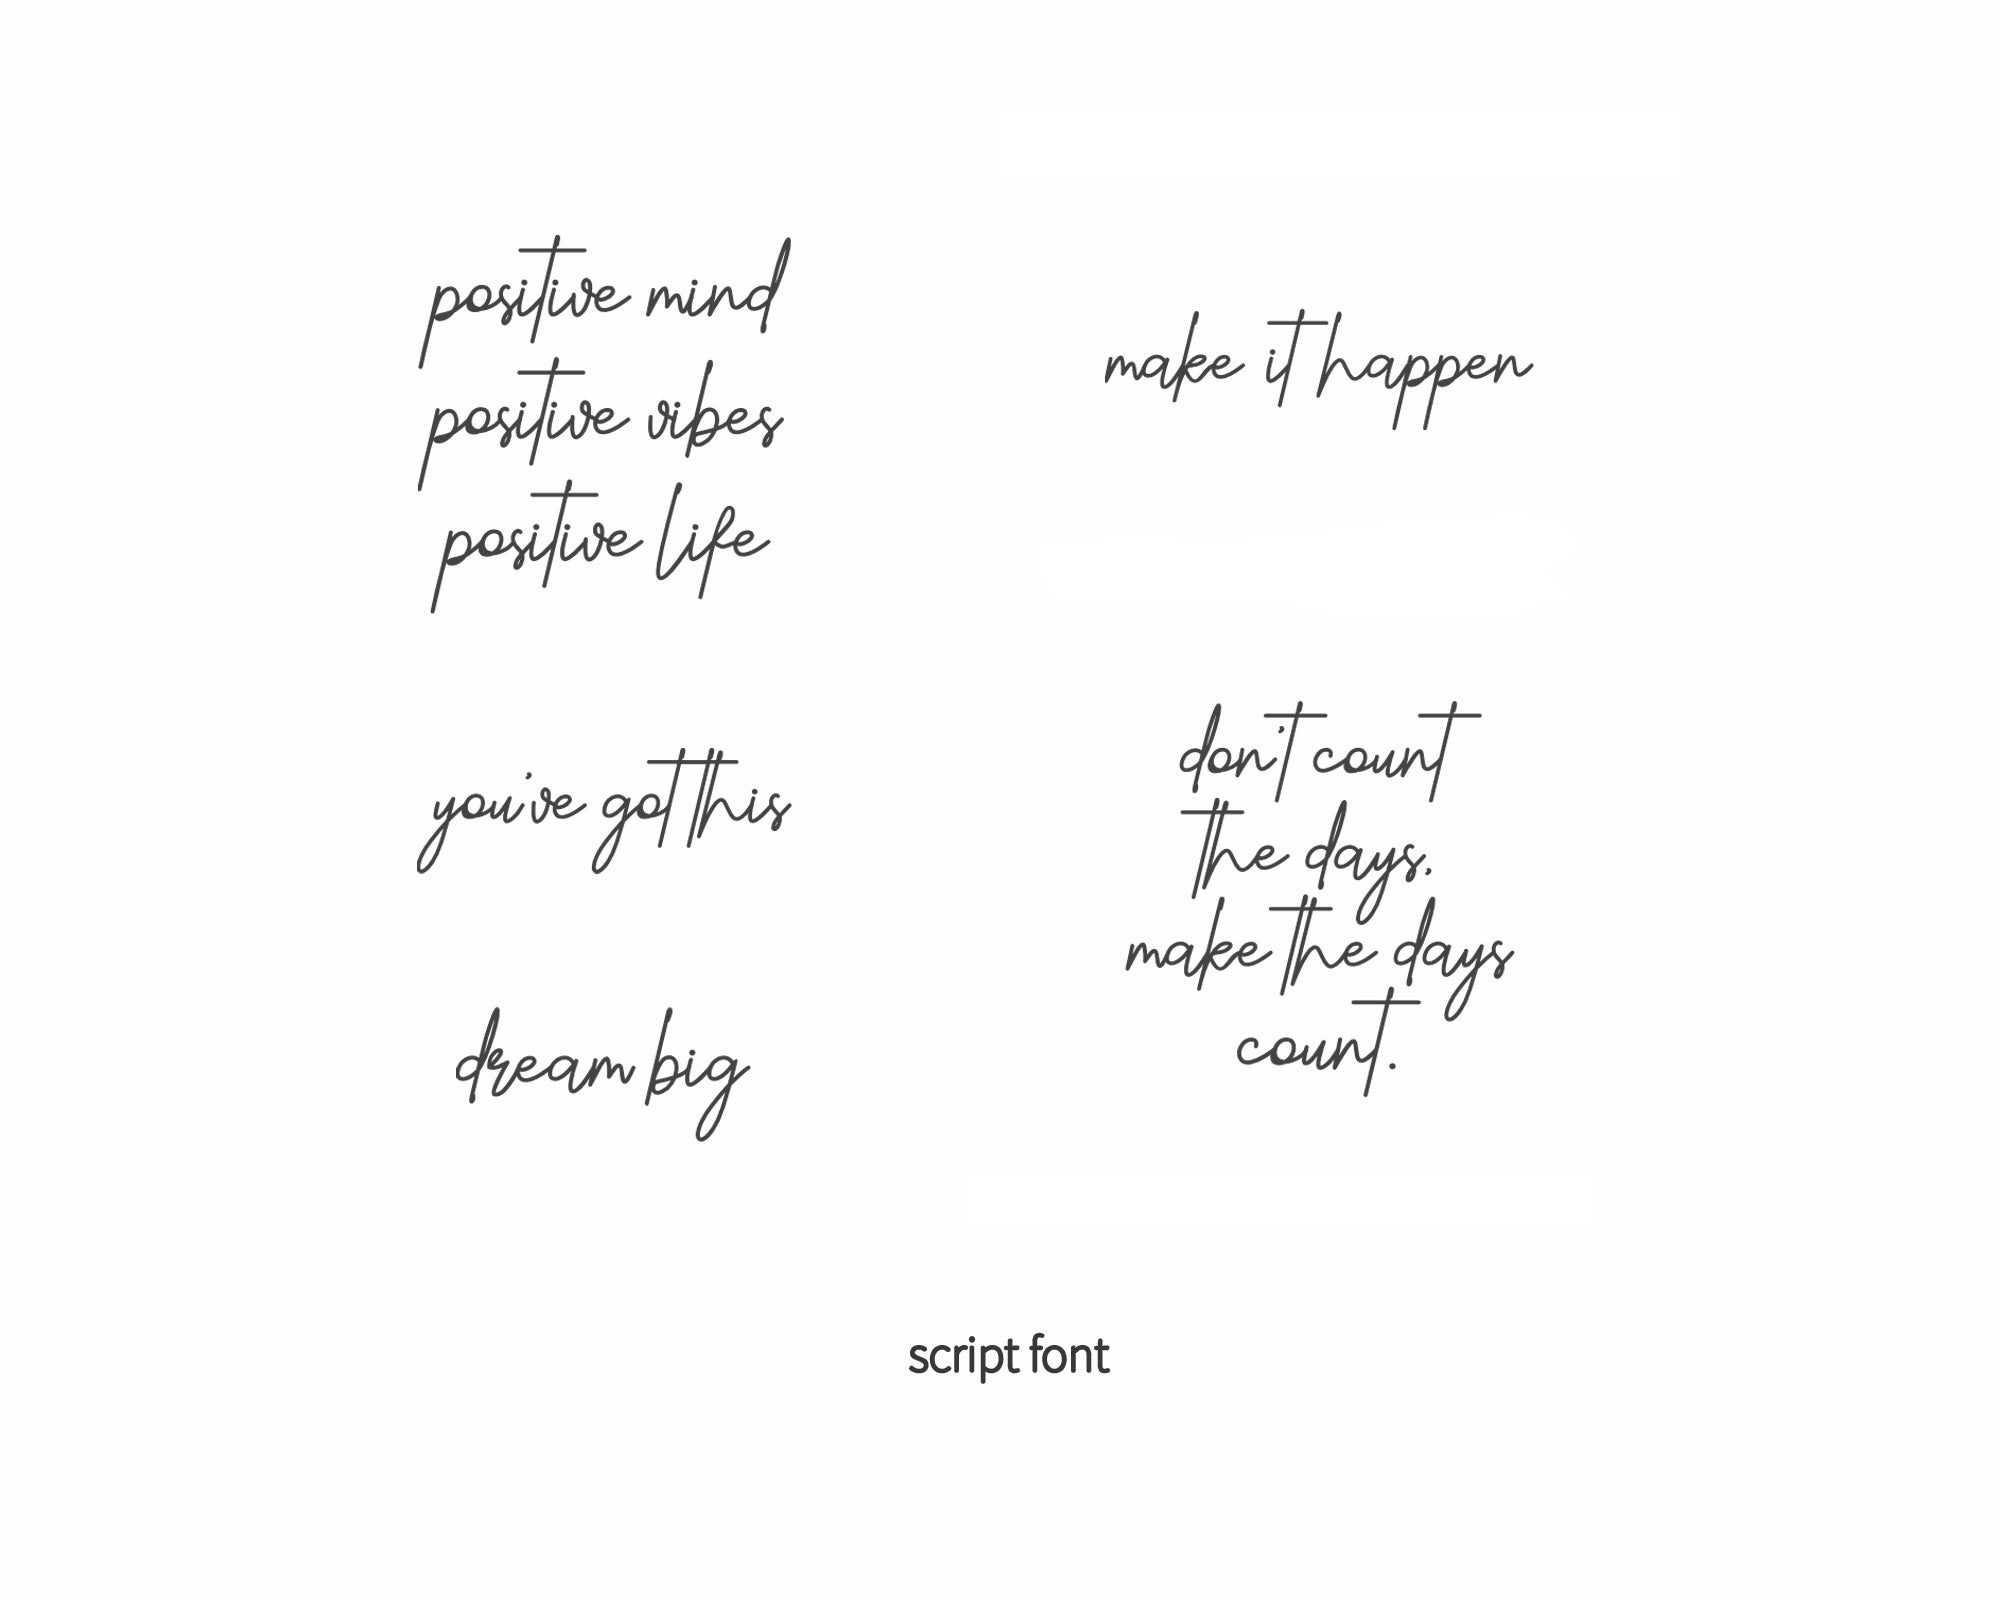 positive mind
positive vibes
positive life
make it happen
you've got this
don't count
the days,
make the days
count.
dream big
script font